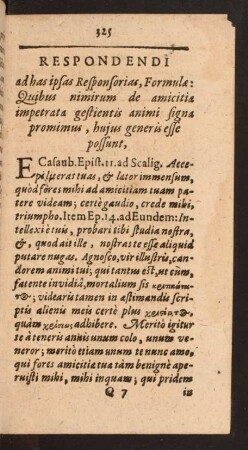 325
RESPONDENDI
ad has ipsas Responsorias, Formulæ:
Quibus nimirum de amicitia
impetrata gestientis animi signa
promimus, hujus generis esse
possunt,
E Casaub. Epist. 11. ad Scalig. Acce-
perisperas tuas, & lætor immensum,
quòd fores mihi ad amicitiam tuam pa-
tere videam; certè gaudio, crede mihi,
triumpho. Item Ep. 14. ad Eundem: In-
tellexi è tuis, probari tibi studia nostra,
&, quod ait ille, nostras te esse aliquid
putare nugas. Agnosco, vir illustris, can-
dorem animi tui; qui tantus est, ut cùm,
fatente invidiâ, mortalium sis
; videaris tamen in æstimandis scri-
ptis alienis meis certè plus
quàm adhibere. Meritò igitur
te à teneris annis unum colo, unum ve-
neror; meritò etiam unum te nunc amo,
qui fores amicitiæ tuæ tàm benignè ape-
ruisti mihi, mihi inquam; qui pridem
Q 7 in